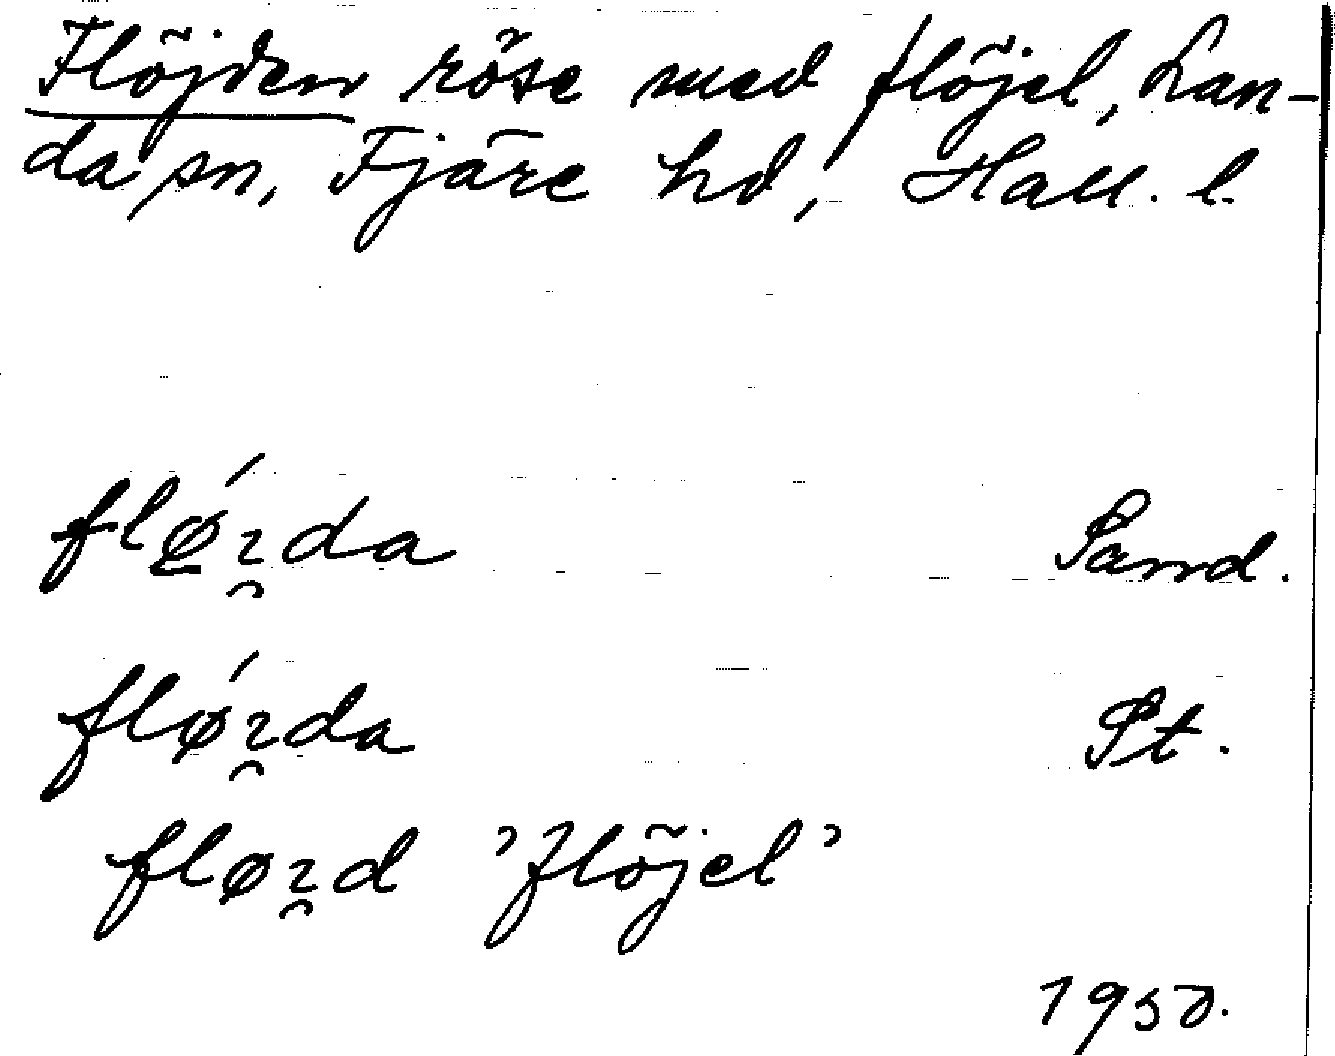 Flöjden röse med flöjel, Lan-
da sn, Fjäre hd, Hall. l.
flǿ̱ı̯da Sand.
flǿı̯da St.
fløı̯d 'flöjel'
1950.